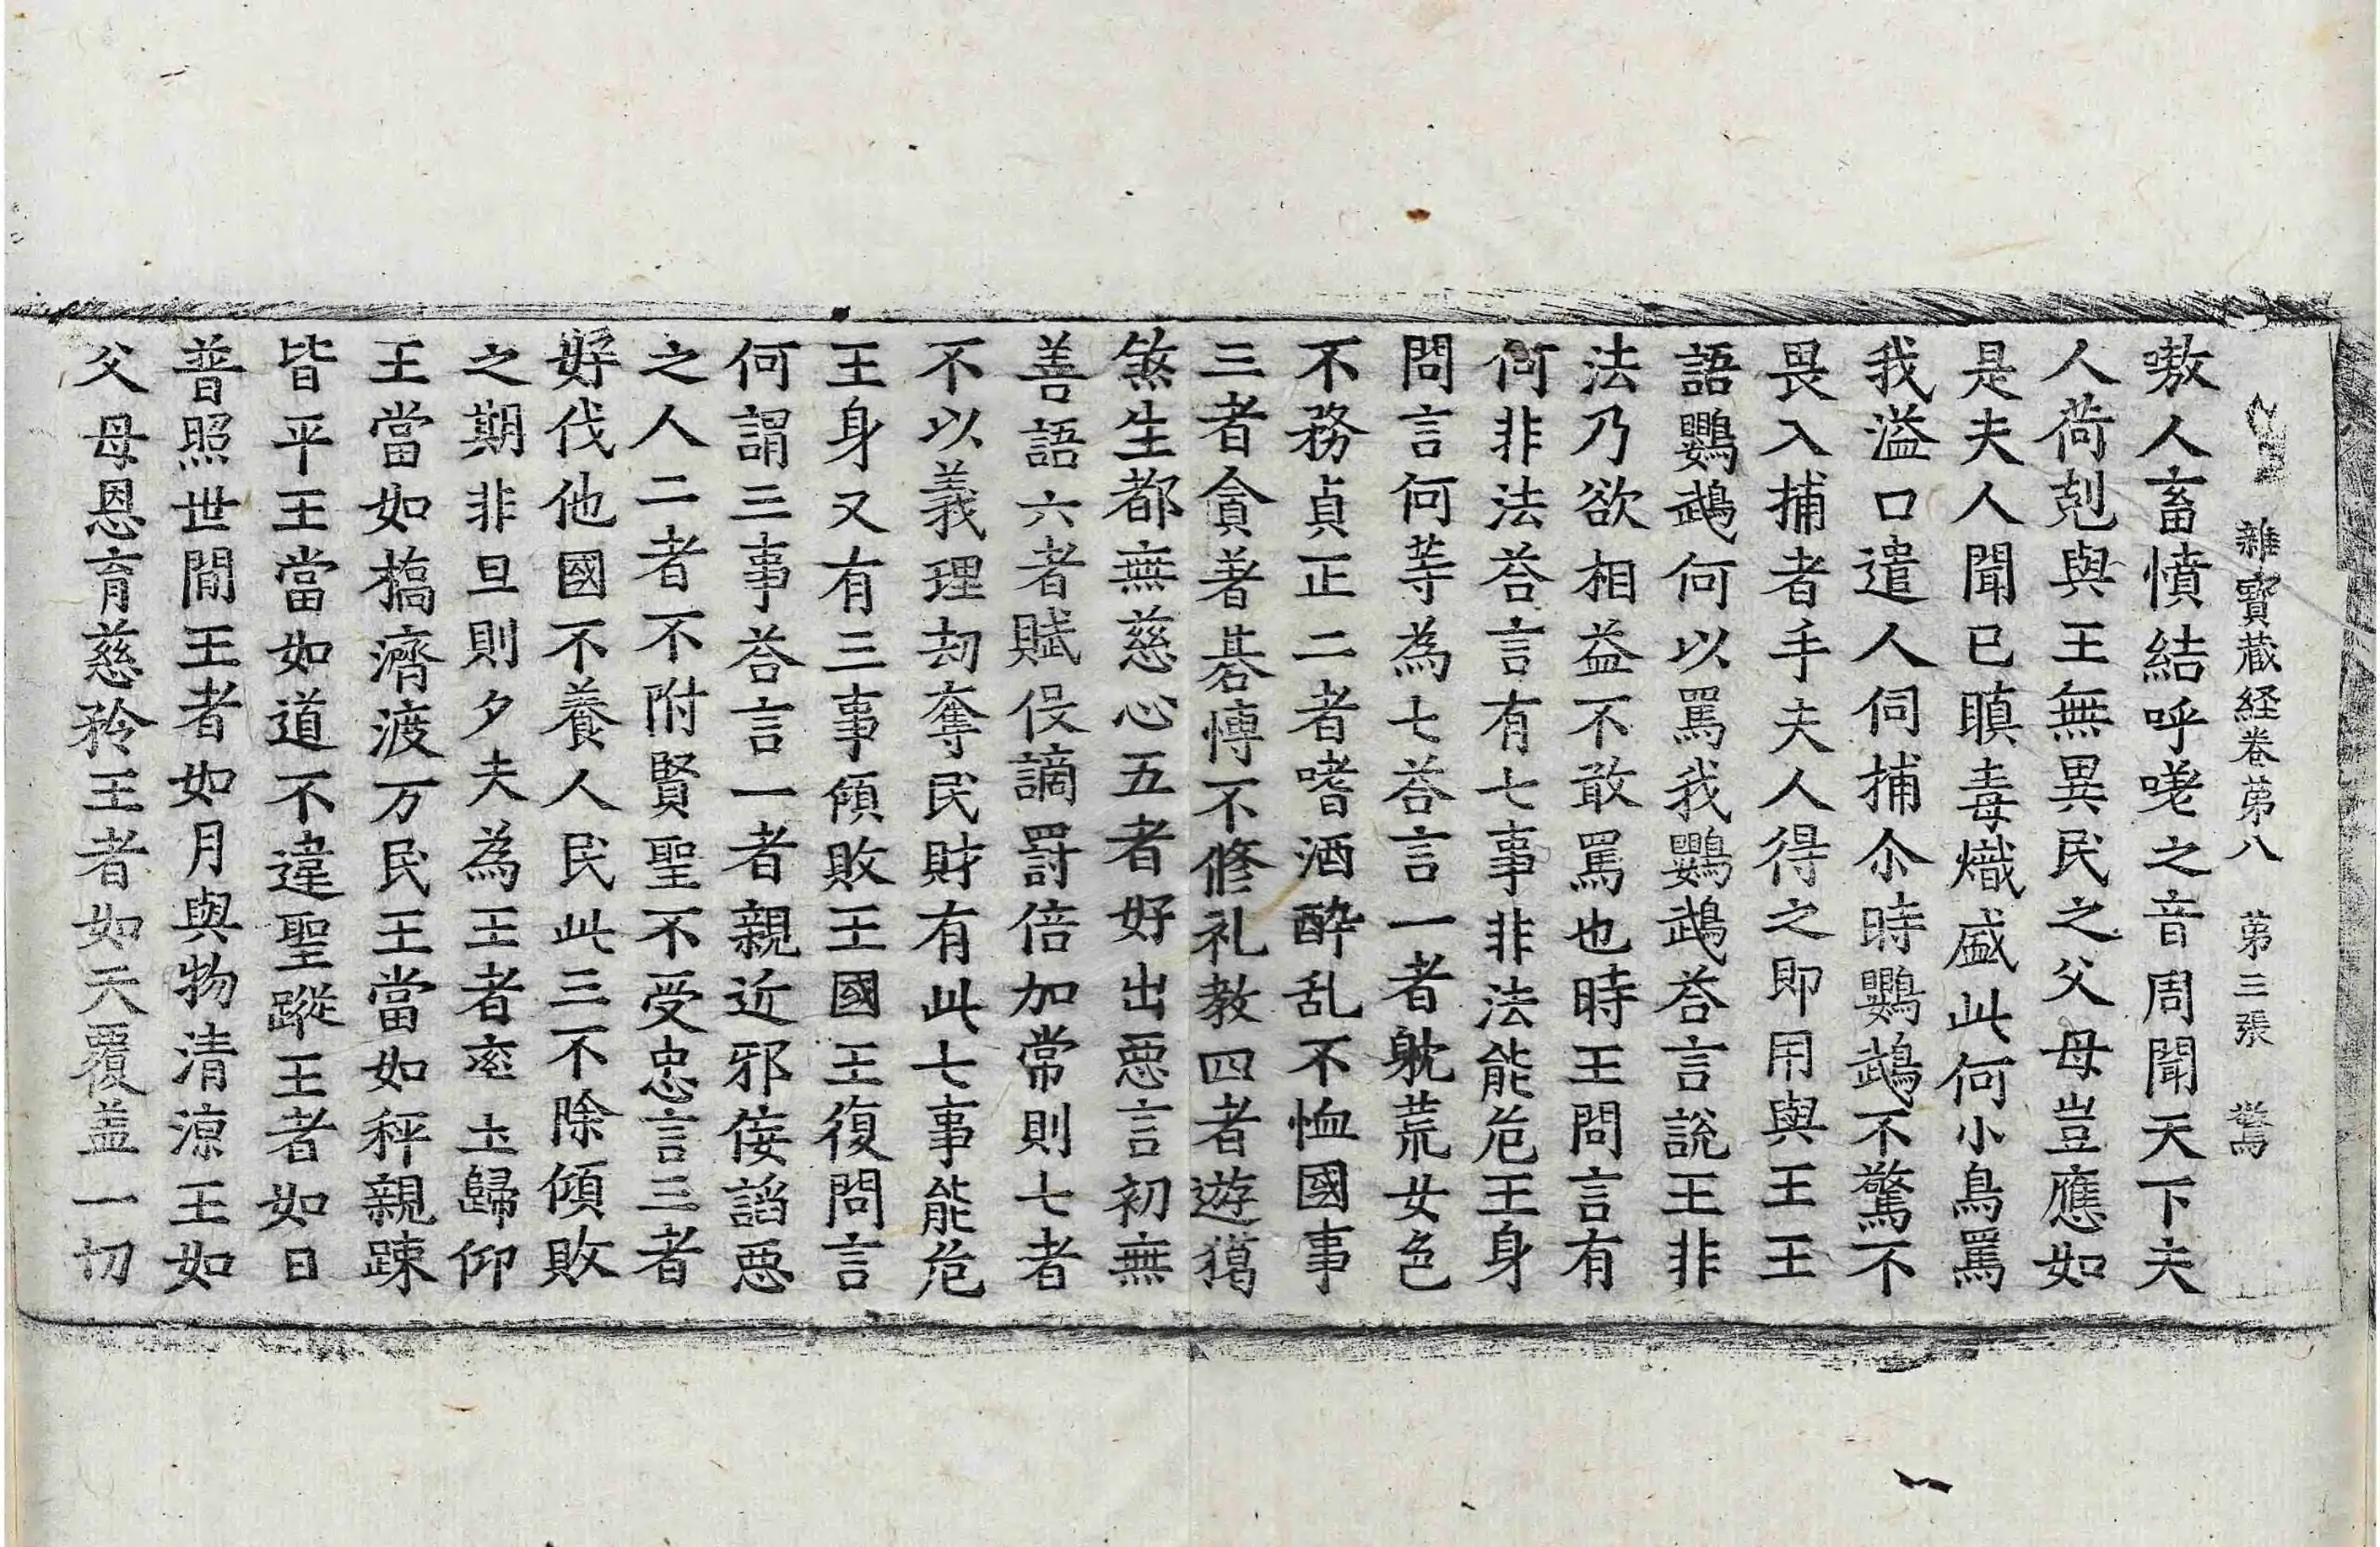 雜寶蔵経卷苐八　苐三張　驚
嗷人畜憤結呼嗟之音周聞天下夫
人荷剋與王無異民之父母豈應如
是夫人聞已瞋毒熾盛此何小鳥罵
我溢口遣人伺捕尒時鸚鵡不驚不
畏入捕者手夫人得之即用與王王
語鸚鵡何以罵我鸚鵡荅言說王非
法乃欲相益不敢罵也時王問言有
何非法荅言有七事非法能危王身
問言何等為七荅言一者躭荒女色
不務貞正二者嗜酒醉乱不恤國事
三者貪著碁愽不修礼教四者遊獦
煞生都無慈心五者好出惡言初無
善語六者賦役讁罸倍加常則七者
不以義理刼奪民財有此七事能危
王身又有三事傾敗王國王復問言
何謂三事荅言一者親近邪佞諂惡
之人二者不附賢聖不受忠言三者
好伐他國不養人民此三不除傾敗
之期非旦則夕夫為王者率土歸仰
王當如橋濟渡万民王當如秤親踈
皆平王當如道不違聖蹤王者如日
普照世間王者如月與物清涼王如
父母恩育慈矜王者如天覆盖一切